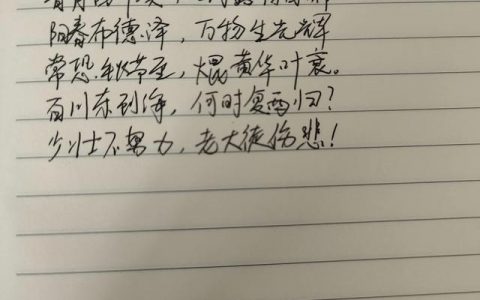 阳春布德泽,万物生光辉
常恐秋节至,焜黄华叶衰。
百川东到海,何时复西归?
少壮不努力,老大徒伤悲!